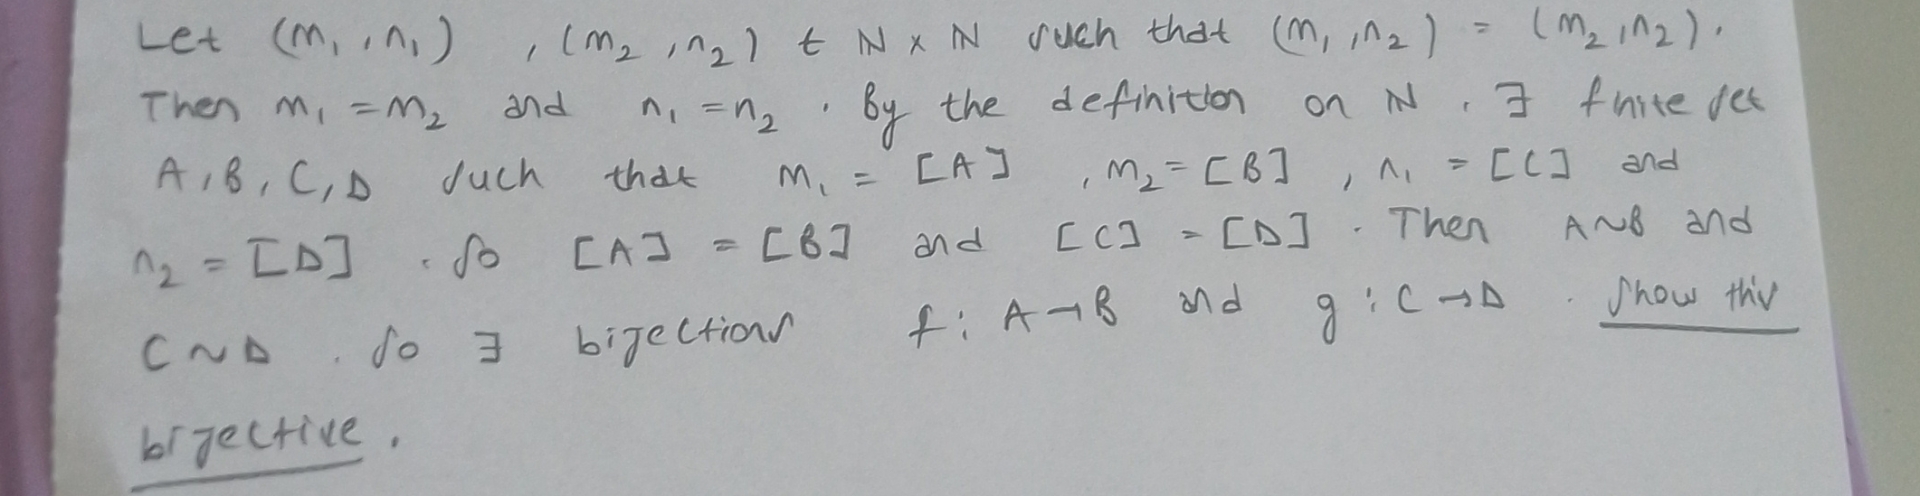 Let (m₁, n₁) , (m₂, n₂) ∈ ℕ × ℕ such that (m₁, n₂) = (m₂, n₂).
Then m₁ = m₂ and n₁ = n₂ . By the definition on ℕ , ∃ finite set
A, B, C, D such that m₁ = [A] , m₂ = [B] , n₁ = [C] and
n₂ = [D] . So [A] = [B] and [C] = [D] . Then A~B and
C~D . So ∃ bijections f: A→B and g: C→D . Show this
bijective.